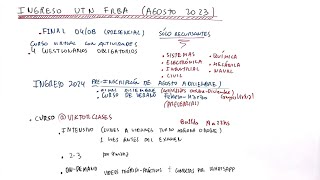 INGRESO UTN FRBA (AGOSTO 2023)
• FINAL 04/08 (PRESENCIAL)
SÓLO RECURSANTES
CURSO VIRTUAL CON ACTIVIDADES
4 CUESTIONARIOS OBLIGATORIOS
• SISTEMAS • QUÍMICA
• ELECTRÓNICA • MECÁNICA
• INDUSTRIAL • NAVAL
• CIVIL
INGRESO 2024 PRE-INSCRIPCIÓN DE AGOSTO A DICIEMBRE!
• CURSO DE VERANO FEBRERO-MARZO
(PRESENCIAL)
• CURSO @VIKTORCLASES
INTENSIVO (LUNES A VIERNES TURNO MAÑANA O NOCHE)
1 MES ANTES DEL EXAMEN
• 2-3
• ON-DEMAND VIDEOS TEÓRICO-PRÁCTICOS + CONSULTAS POR WHATSAPP